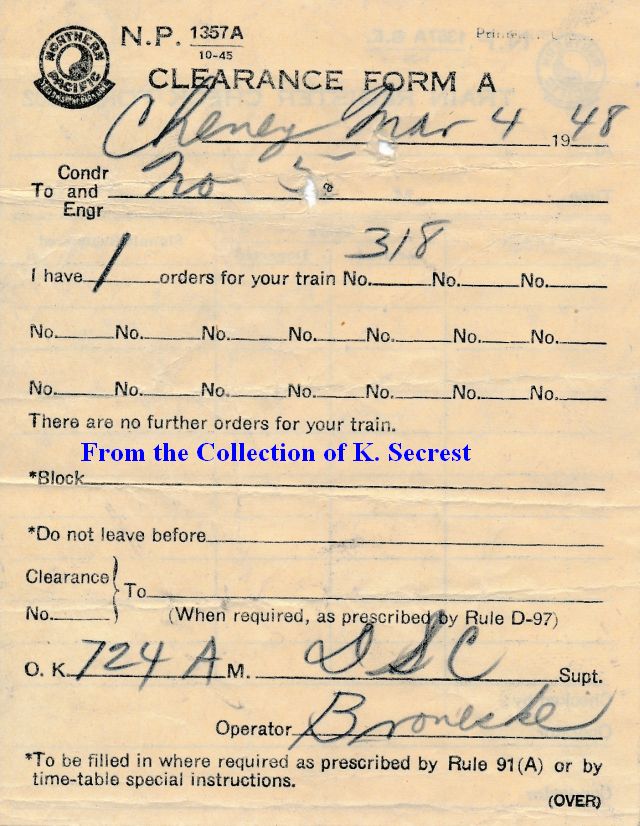 NORTHERN PACIFIC
N.P. 1357A
10-45
CLEARANCE FORM A
Cheney Mar 4 1948
Condr
To and No 5
Engr
318
I have 1 orders for your train No. No. No.
No. No. No. No. No. No. No.
No. No. No. No. No. No. No.
There are no further orders for your train.
From the Collection of K. Secrest
*Block
*Do not leave before
Clearance
To
No. (When required, as prescribed by Rule D-97)
O. K. 724 A M. DSC Supt.
Operator Broneske
*To be filled in where required as prescribed by Rule 91(A) or by
time-table special instructions.
(OVER)